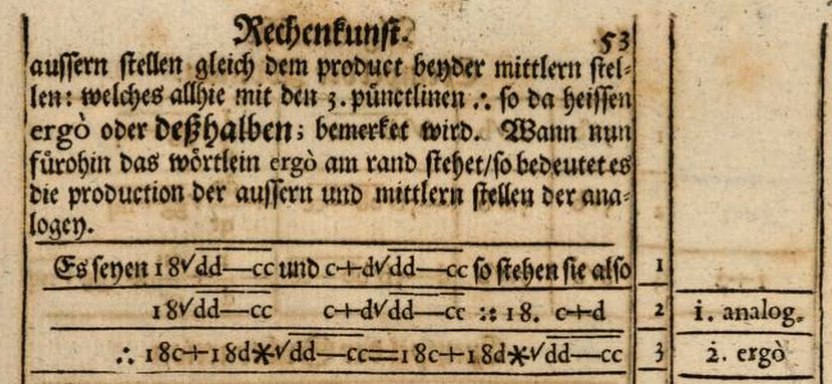 Rechenkunst. 53
aussern stellen gleich dem product beyder mittlern stel⸗
len: welches allhie mit den 3. pünctlinen ∴ so da heissen
ergò oder deßhalben; bemerket wird. Wann nun
fürohin das wörtlein ergò am rand stehet/so bedeutet es
die production der aussern und mittlern stellen der ana⸗
logey.
Es seyen 18√dd—cc und c+d√dd—cc so stehen sie also 1
18√dd—cc c+d√dd—cc :: 18. c+d 2 1. analog.
∴ 18c+18d*√dd—cc=18c+18d*√dd—cc 3 2. ergò